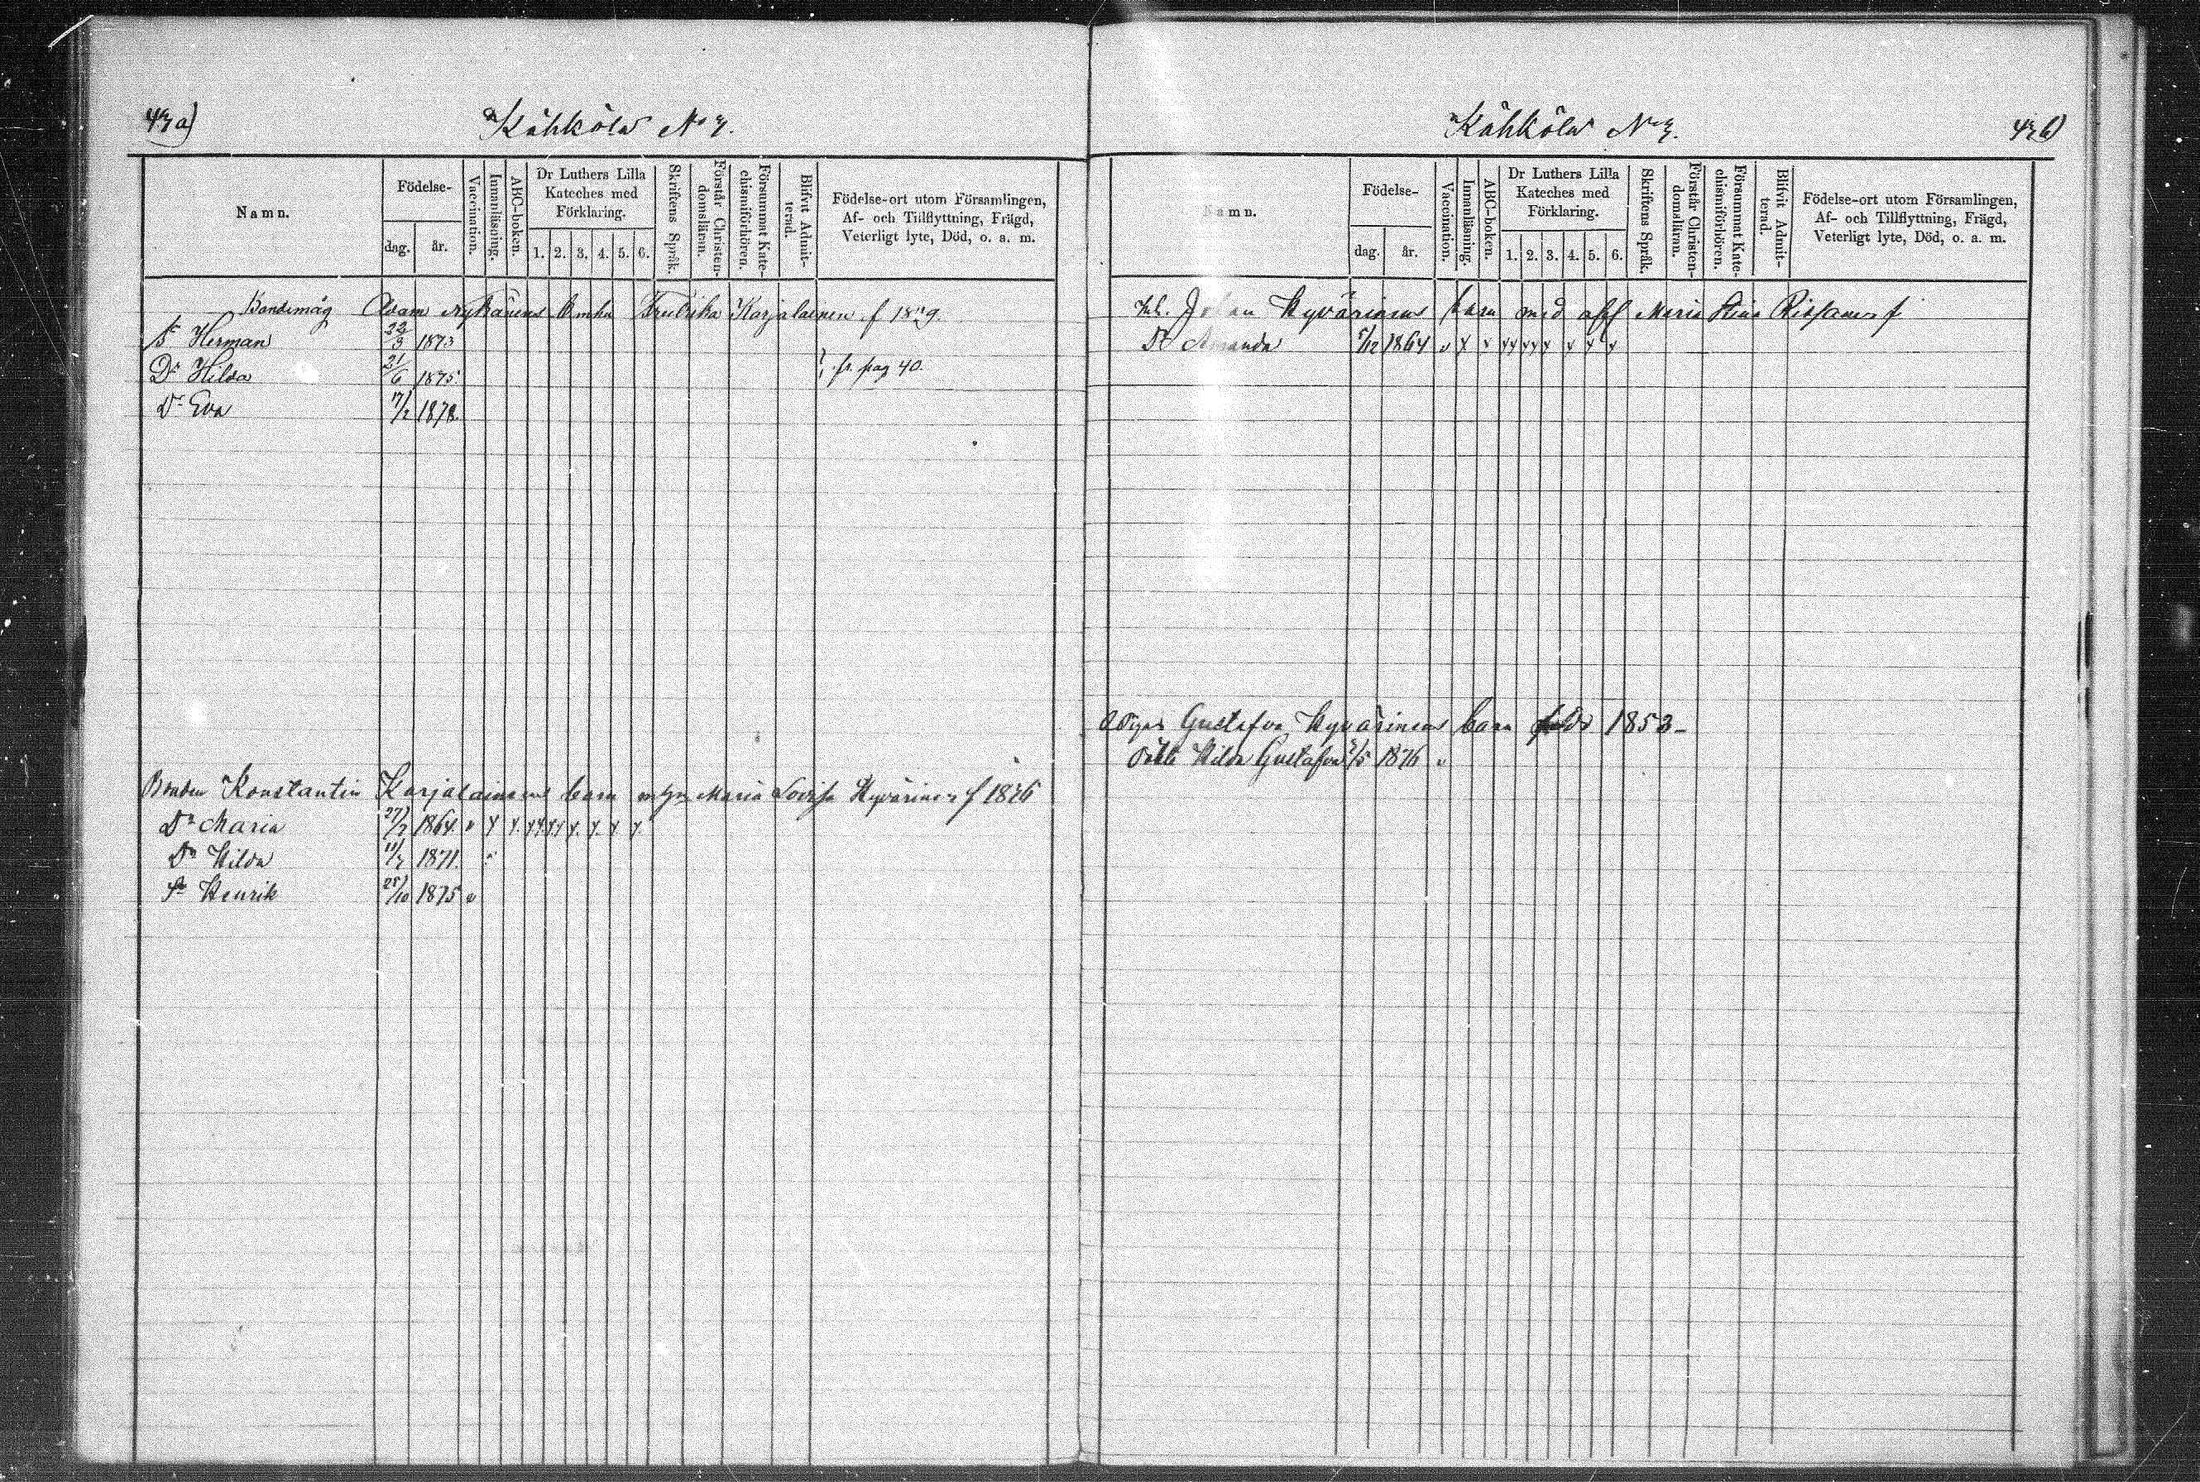 43 a)
Kähkölä No 7.
Namn.
Födelse-
dag. år.
Vaccination.
Innanläsning.
ABC-boken.
Dr Luthers Lilla Kateches med Förklaring.
1. 2. 3. 4. 5. 6.
Skriftens Språk.
Förstår Christendomsläran.
Försummat Katechismiförhören.
Blifvit Admitterad.
Födelse-ort utom Församlingen,
Af- och Tillflyttning, Frägd,
Veterligt lyte, Död, o. a. m.
Bondemåg Adam Nykänens Fredrika Karjalainen f
Sn Herman 22/3 1873
Dr Hilda 21/6 1875 fr. pag 40.
Dr Eva 17/2 1878.
Bonden Konstantin Karjalainens barn m hu Maria Lovisa Hyvärinen f 1826
Dr Maria 27/2 1864 v y y. y y y y y. y. y y.
Dr Hilda 11/7 1871.
Sn Henrik 25/10 1875 v
Kähkölä No 7.
43 b)
Namn.
Födelse-
dag. år.
Vaccination.
Innanläsning.
ABC-boken.
Dr Luthers Lilla Kateches med Förklaring.
1. 2. 3. 4. 5. 6.
Skriftens Språk.
Förstår Christendomsläran.
Försummat Katechismiförhören.
Blifvit Admitterad.
Födelse-ort utom Församlingen,
Af- och Tillflyttning, Frägd,
Veterligt lyte, Död, o. a. m.
Inh. Johan Hyvärinens barn med afl Maria Stina Rissanen f
Dr Amanda 5/12 1864 v y v y y y y y v y y
Gustafva Hyvärinens barn född 1853
Hilda Gustafva 2/5 1876 v